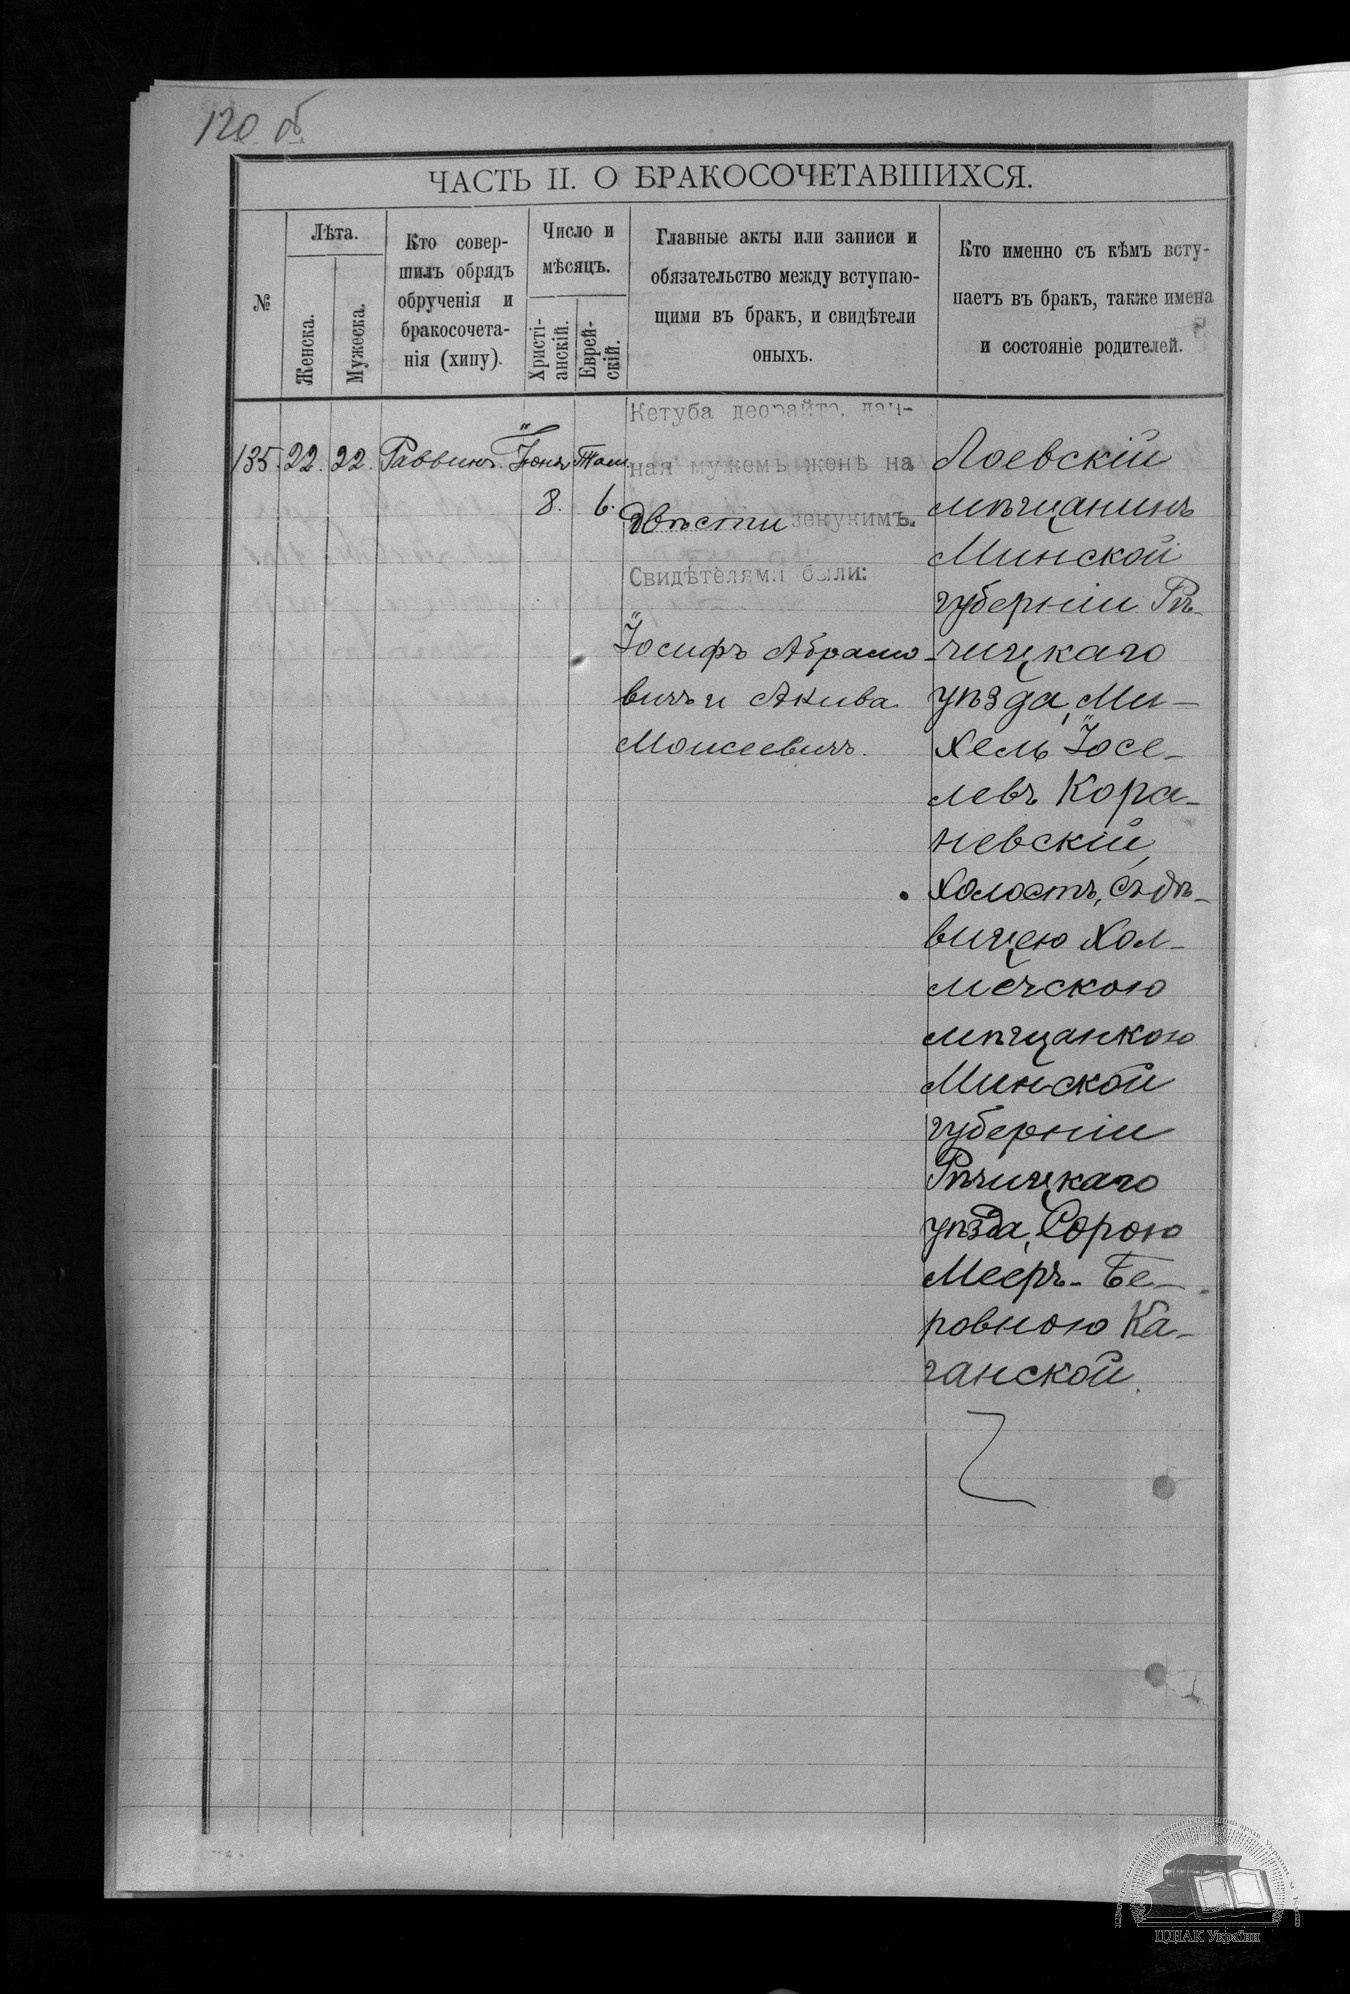 120 об
ЧАСТЬ II. О БРАКОСОЧЕТАВШИХСЯ.
№
Лѣта.
Женска.
Мужеска.
Кто совер-
шилъ обрядъ
обрученія и
бракосочета-
нія (хипу).
Число и
мѣсяцъ.
Христі-
анскій.
Еврей-
скій.
Главные акты или записи и
обязательство между вступаю-
щими въ бракъ, и свидѣтели
оныхъ.
Кто именно съ кѣмъ всту-
паетъ въ бракъ, также имена
и состояніе родителей.
135. 22. 22. Раввинъ. Іюня Там.
8. 6.
Кетуба деорайто, дан-
ная мужемъ женѣ на
двѣсти зекукимъ.
Свидѣтелями были:
Іосифъ Абрамо-
вичъ и Акива
Моисеевичъ.
Лоевскій
мѣщанинъ
Минской
губерніи Рѣ-
чицкаго
уѣзда, Ми-
хель Іосе-
левъ Кора-
невскій,
холостъ, съ дѣ-
вицею Хол-
мечскою
мѣщанкою
Минской
губерніи
Рѣчицкаго
уѣзда, Сорою
Мееръ-Бе-
ровною Ка-
ганской.
ЦДІАК України